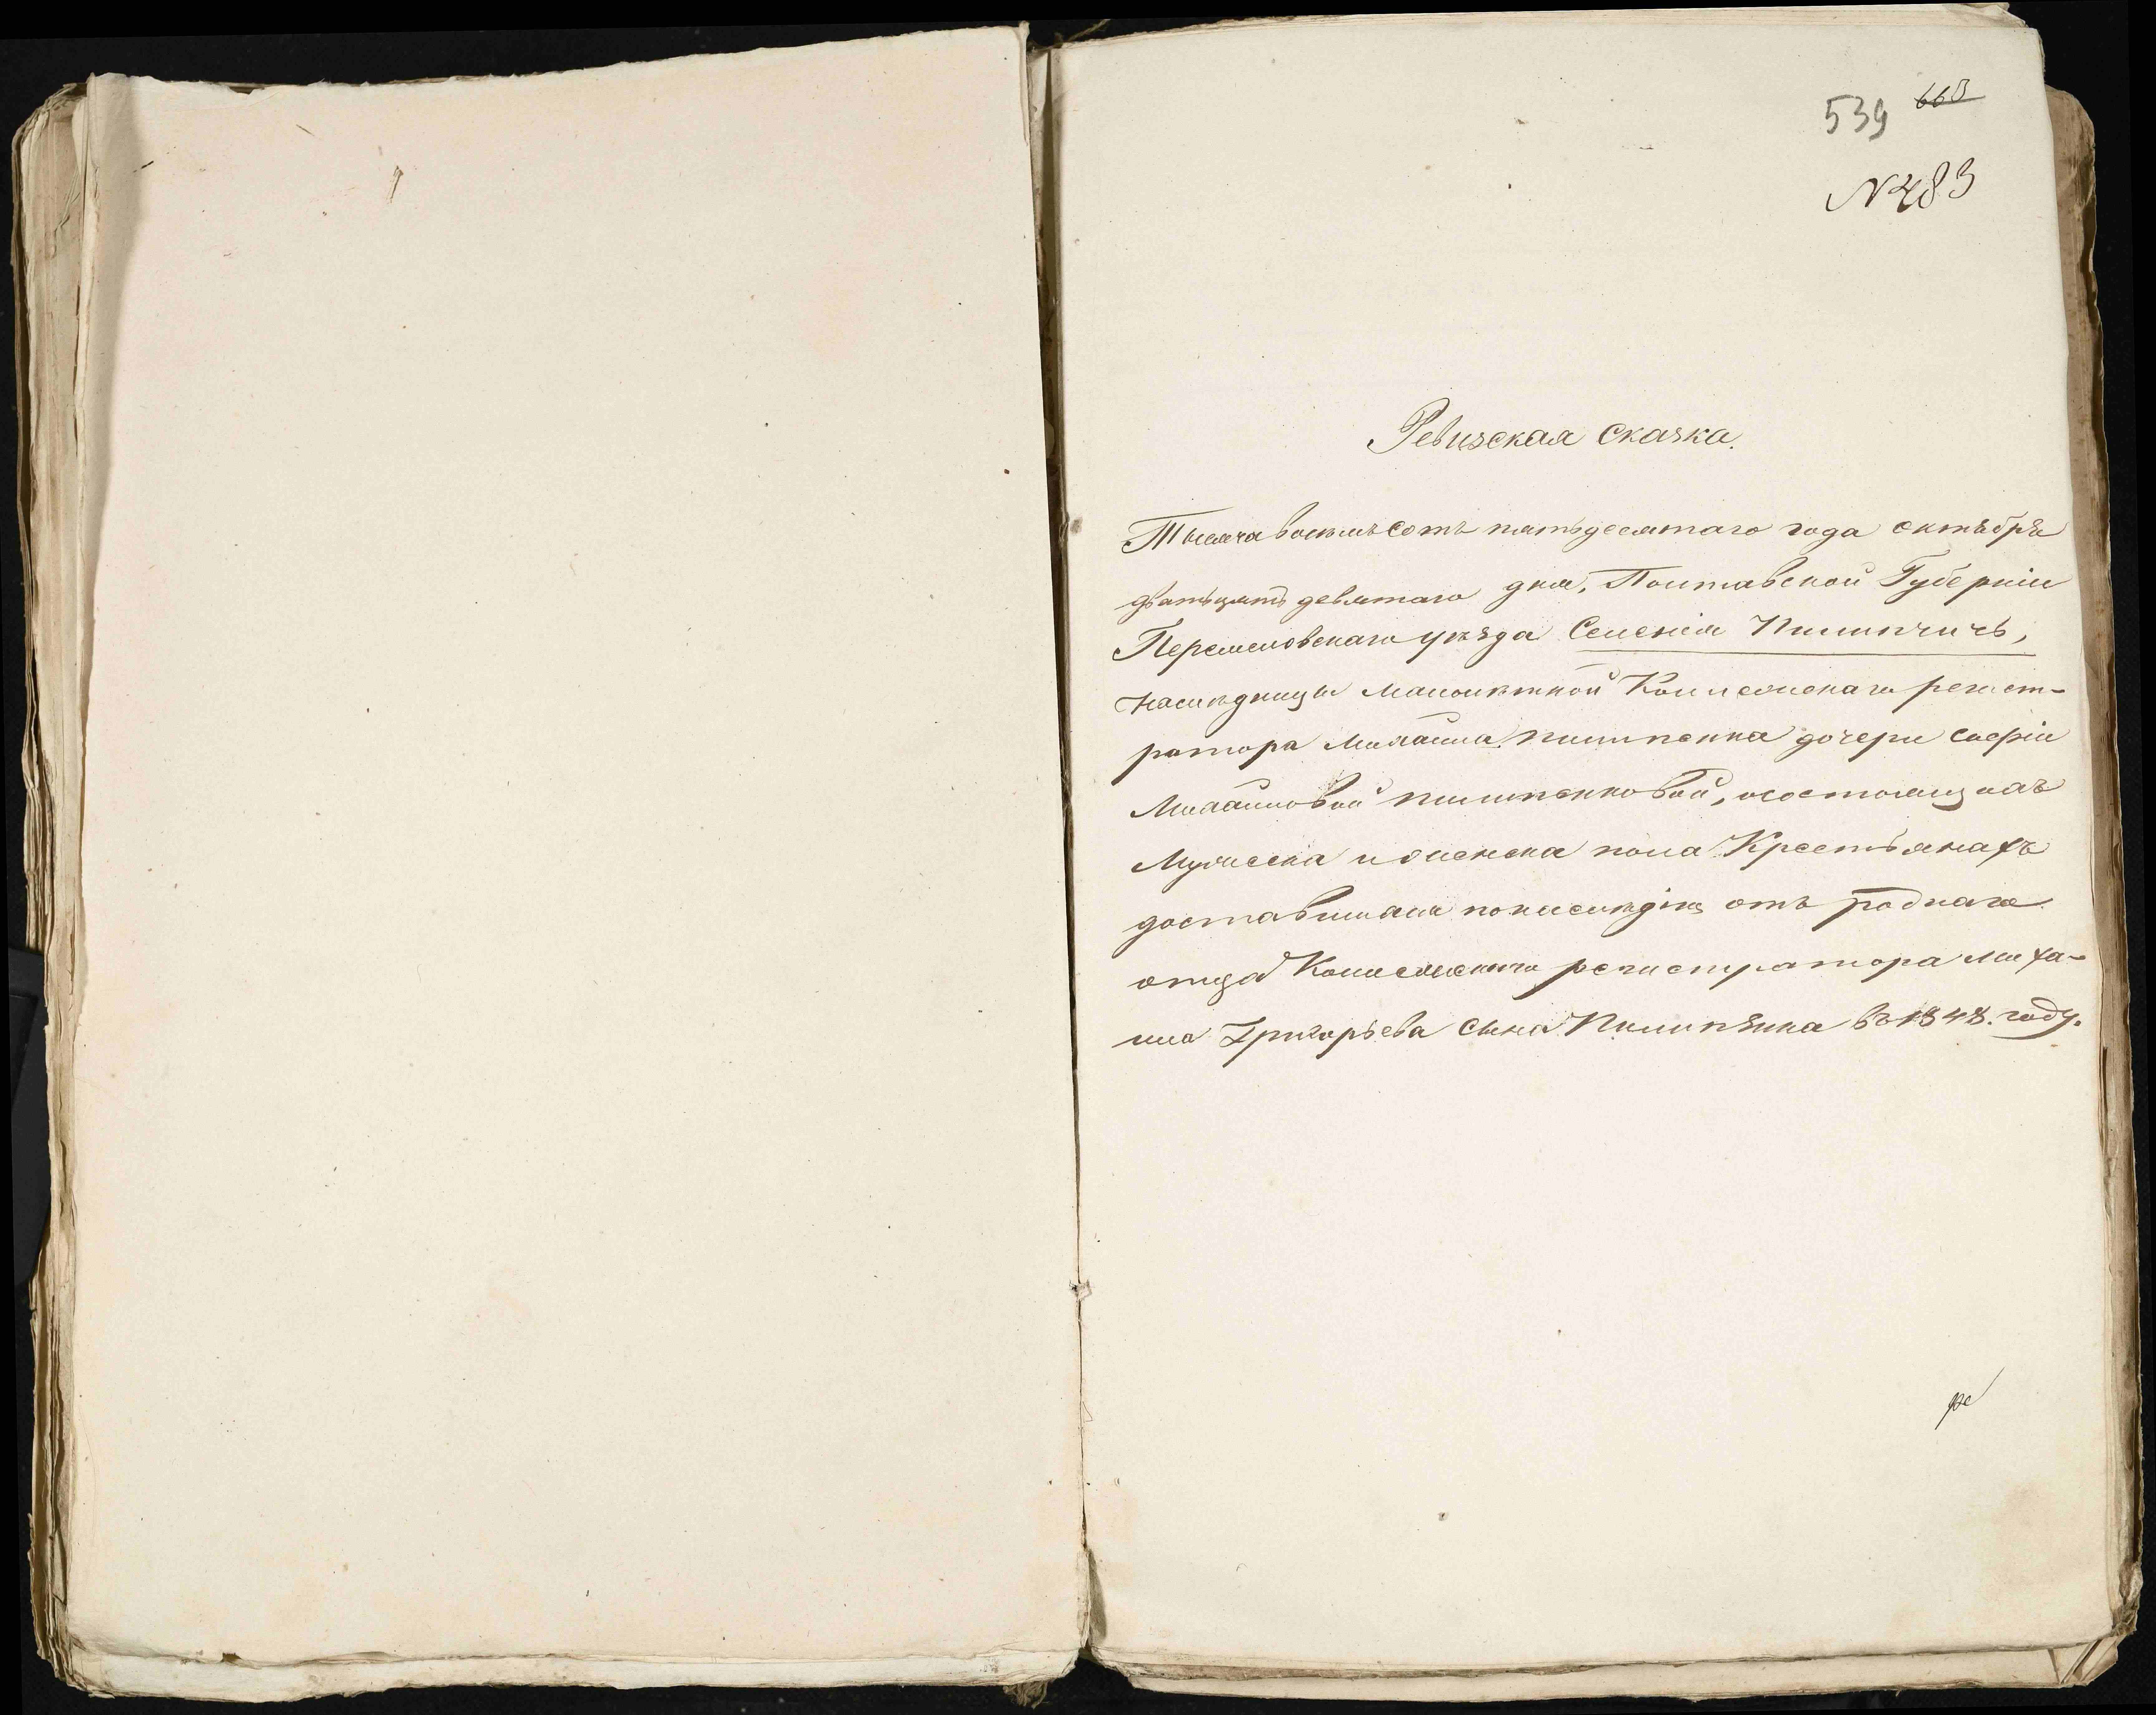 539 668
N 483
Ревизская Сказка.
Тысяча восемьсотъ пятьдесятаго года октября
дватцать девятаго дня, Полтавской Губерніи
Переяславскаго уѣзда Селенія Пилипчичь,
наслѣдницы малолѣтной Коллежскаго регист-
ратора Михайла Пилипенка дочери Софіи
Михайловой Пилипенковой, о состоящихъ
Мужеска и женска пола Крестьянахъ
доставшихся по наслѣдію отъ роднаго
отца Коллежскаго регистратора Миха-
ила Григорьева сына Пилипенка въ 1848. году.